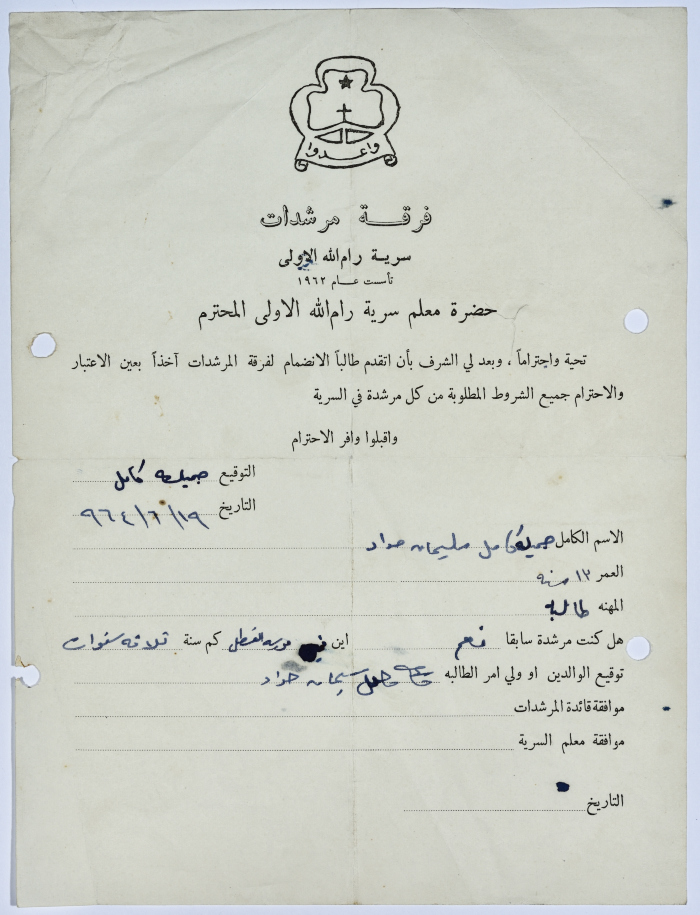 واعدوا
فرقة مرشدات
سرية رام الله الاولى
تأسست عام ١٩٦٢
حضرة معلم سرية رام الله الاولى المحترم
تحية واحتراماً ، وبعد لي الشرف بأن اتقدم طالباً الانضمام لفرقة المرشدات آخذاً بعين الاعتبار
والاحترام جميع الشروط المطلوبة من كل مرشدة في السرية
واقبلوا وافر الاحترام
التوقيع جميله كامل
التاريخ ١٩/٦/٩٦٤
الاسم الكامل جميله كامل سليمان حداد
العمر ١٣ سنه
المهنه طالبة
هل كنت مرشدة سابقا نعم اين في مدرسه كم سنة ثلاثه سنوات
توقيع الوالدين او ولي امر الطالبه كامل سليمان حداد
موافقة قائدة المرشدات
موافقة معلم السرية
التاريخ